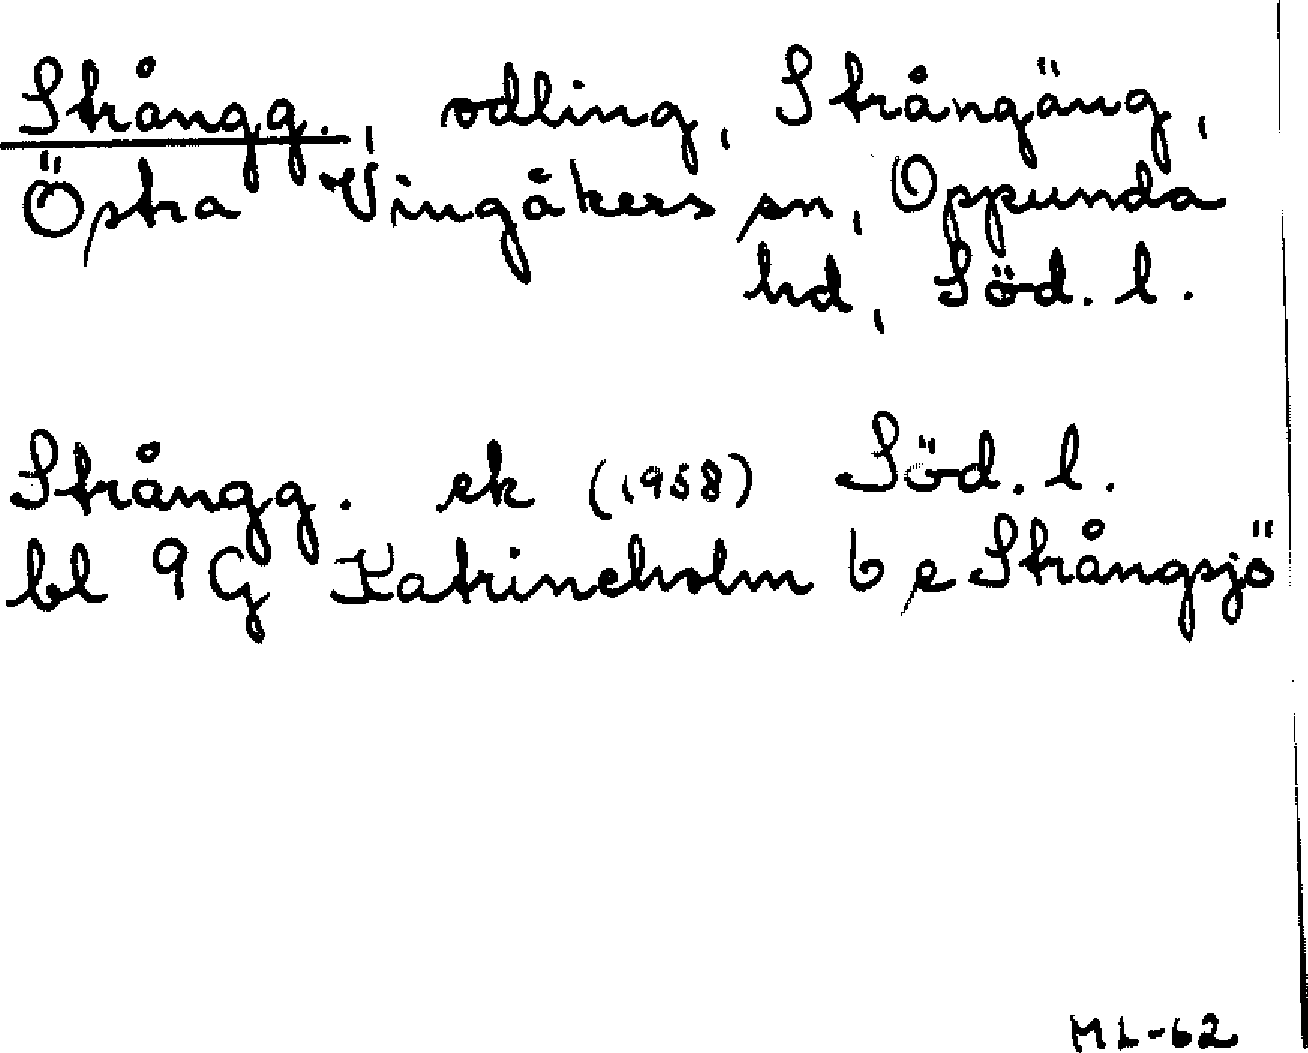 Strångg., odling, Strångäng,
Östra Vingåkers sn, Oppunda
hd, Söd. l.
Strångg. ek (1958) Söd. l.
bl 9 G Katrineholm b e Strångsjö
ML-62